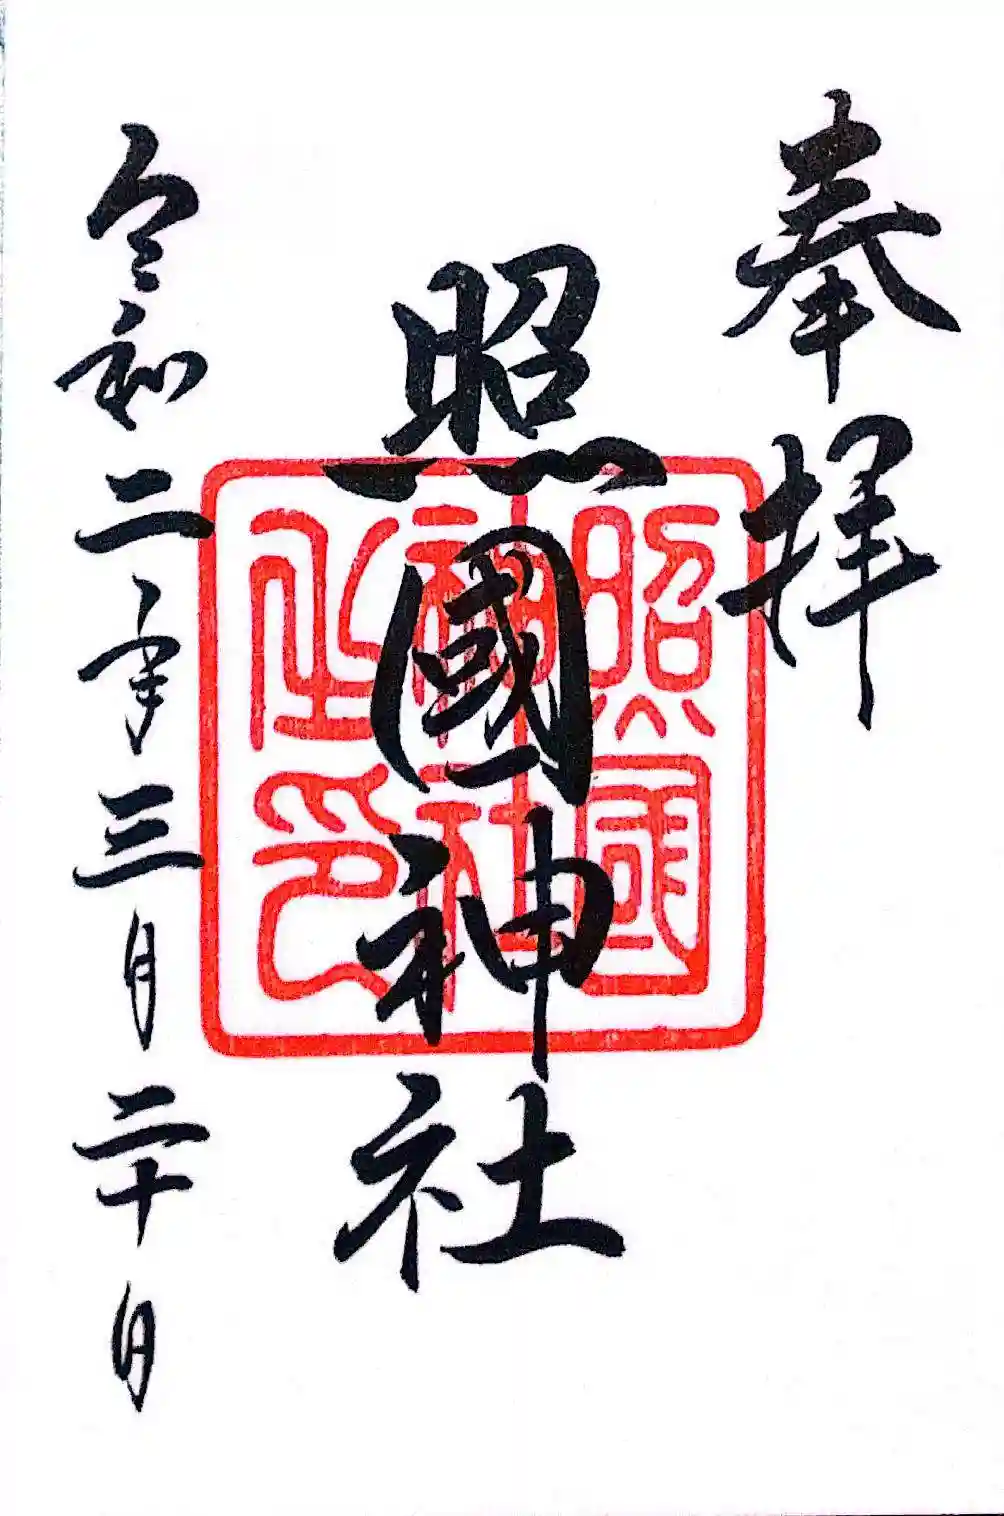 奉拝
照國神社
照國
神社
之印
令和二年三月二十日